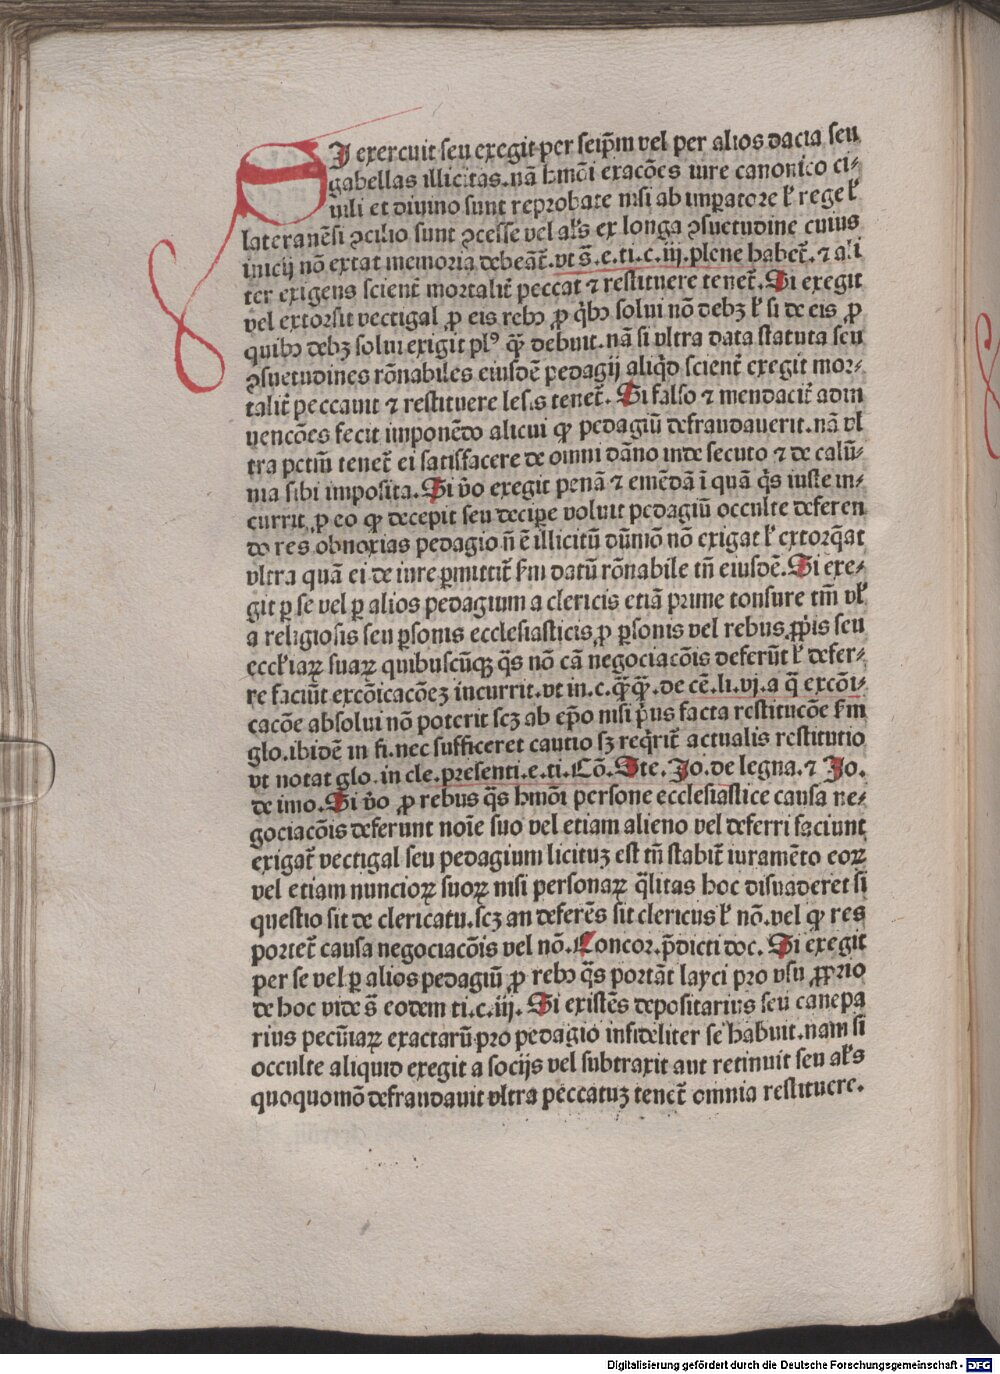 SI exercuit seu exegit per seip̃m vel per alios dacia seu
gabellas illicitas. nã hmõi exacões iure canonico ci⸗
uili et diuino sunt reprobate nisi ab impatore ł rege ł
lateranẽsi ꝯcilio sunt ꝯcesse vel al's ex longa ꝯsuetudine cuius
inicij nõ extat memoria debeãt̃. vt s̃. e. ti. c. iij. plene habet̃. ⁊ ali
ter exigens scient̃ mortalit̃ peccat ⁊ restituere tenet̃. Si exegit
vel extorsit vectigal ꝓ eis rebꝫ ꝓ q̃bꝫ solui nõ debꝫ ł si de eis ꝓ
quibꝫ debꝫ solui exigit plꝰ q̃ꝫ debuit. nã si vltra data statuta seu
ꝯsuetudines rõnabiles eiusdẽ pedagij aliq̃d scient̃ exegit mor⸗
talit̃ peccauit ⁊ restituere lesis tenet̃. Si falso ⁊ mendacit̃ adin
uencões fecit imponẽdo alicui ꝙ pedagiũ defraudauerit. nã vl
tra pctm̃ tenet̃ ei satisfacere de omni dãno inde secuto ⁊ de calũ⸗
nia sibi imposita. Si ṽo exegit penã ⁊ emẽdã ĩ quã q̃s iuste in⸗
currit ꝓ eo ꝙ decepit seu decipe voluit pedagiũ occulte deferen
do res obnoxias pedagio ñ ẽ illicitũ dũmõ nõ exigat ł extorq̃at
vltra quã ei de iure ꝑmittit̃ ẜm datũ rõnabile tñ eiusdẽ. Si exe⸗
git ꝑ se vel ꝑ alios pedagium a clericis etiã prime tonsure tm̃ vł
a religiosis seu ꝑsonis ecclesiasticis ꝓ ꝑsonis vel rebus ꝓpijs seu
eccł'iaꝝ suaꝝ quibuscũqꝫ q̃s nõ cã negociacõis deferũt ł defer⸗
re faciũt excõicacõeꝫ incurrit. vt in. c. q̃ꝫq̃ꝫ. de cẽ. li. vj. a q̃ excõi⸗
cacõe absolui nõ poterit scꝫ ab ep̃o nisi p̃us facta restitucõe ẜm
glo. ibidẽ in fi. nec sufficeret cautio sꝫ req̃rit̃ actualis restitutio
vt notat glo. in cle. presenti. e. ti. Cõ. Ste. Jo. de legna. ⁊ Jo.
de imo. Si ṽo ꝓ rebus q̃s hmõi persone ecclesiastice causa ne⸗
gociacõis deferunt noĩe suo vel etiam alieno vel deferri faciunt
exigat̃ vectigal seu pedagium licituꝫ est tñ stabit̃ iuramẽto eoꝝ
vel etiam nuncioꝝ suoꝝ nisi personaꝝ q̃litas hoc disuaderet si
questio sit de clericatu. scꝫ an deferẽs sit clericus ł nõ. vel ꝙ res
portet̃ causa negociacõis vel nõ. Concor. p̃dicti doc. Si exegit
per se vel ꝑ alios pedagiũ ꝓ rebꝫ q̃s portãt layci pro vsu ꝓprio
de hoc vide s̃ eodem ti. c. iij. Si existẽs depositarius seu canepa
rius pecũiaꝝ exactarũ pro pedagio infideliter se habuit. nam si
occulte aliquid exegit a socijs vel subtraxit aut retinuit seu al's
quoquomõ defraudauit vltra peccatuꝫ tenet̃ omnia restituere.
Digitalisierung gefördert durch die Deutsche Forschungsgemeinschaft - DFG